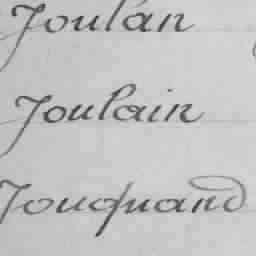 Joulan
Joulain
Jouquand